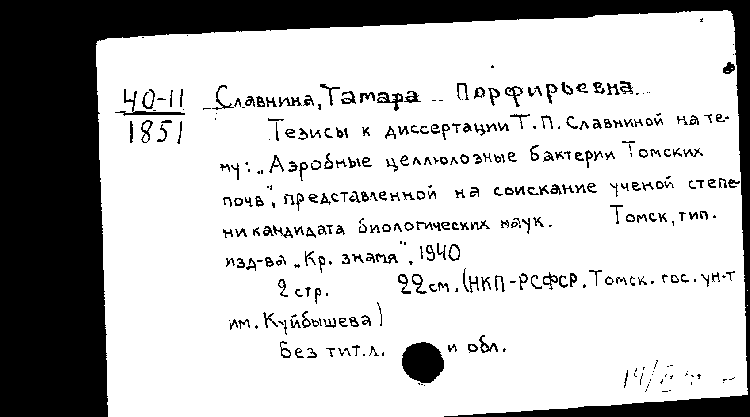 40-11
1851
Славнина, Тамара Порфирьевна.
Тезисы к диссертации Т.П. Славниной на те-
му: „Аэробные целлюлозные бактерии Томских
почв", представленной на соискание ученой степе-
ни кандидата биологических наук. Томск, тип.
изд-ва „Кр. знамя", 1940
2 стр. 22 см. (НКП-РСФСР. Томск. гос. ун-т
им. Куйбышева)
Без тит.л. и обл.